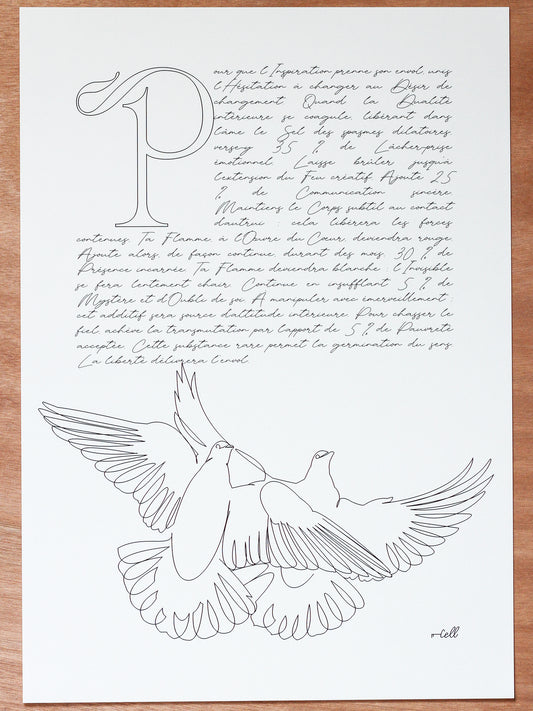 Pour que l'Inspiration prenne son envol, unis
l'Hésitation à changer au Désir de
changement. Quand la Dualité
intérieure se coagule, libérant dans
l'âme le Sel des spasmes dilatoires,
verse-y 35 % de Lâcher-prise
émotionnel. Laisse brûler jusqu'à
l'extension du Feu créatif. Ajoute 25
% de Communication sincère.
Maintiens le Corps subtil au contact
d'autrui : cela libérera les forces
contenues. Ta Flamme à l'Œuvre du Cœur, deviendra rouge.
Ajoute alors, de façon continue, durant des mois, 30 % de
Présence incarnée. Ta Flamme deviendra blanche : l'Invisible
se fera lentement chair. Continue en insufflant 5 % de
Mystère et d'Oubli de soi. À manipuler avec émerveillement :
cet additif sera source d'altitude intérieure. Pour chasser le
fiel, achève la transmutation par l'apport de 5 % de Pauvreté
acceptée. Cette substance rare permet la germination du sens.
La liberté délivrera l'envol.